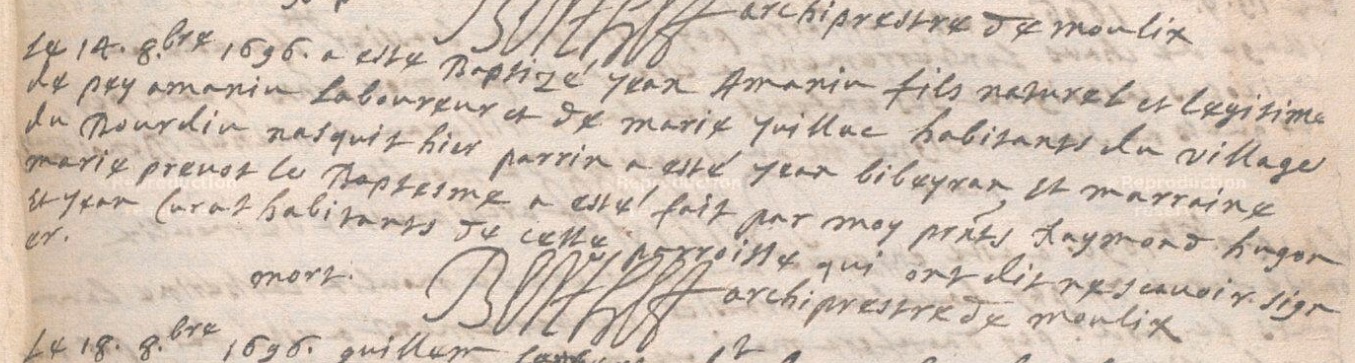 archiprestre de moulix
Le 14. 8.bre 1696. a esté Baptizé jean Amaniu fils naturel et legitime
de pey amaniu Laboureur et de marie juillac habitants du village
du Bourdiu nasquit hier parrin a esté jean bibeyran et marraine
marie prevot le Baptesme a esté fait par moy pnts Raymond hugon
Et jean Curat habitants de cette parroisse qui ont dit ne scavoir sign
er.
mort.
archiprestre de moulix
Le 18. 8.bre 1696. guillem